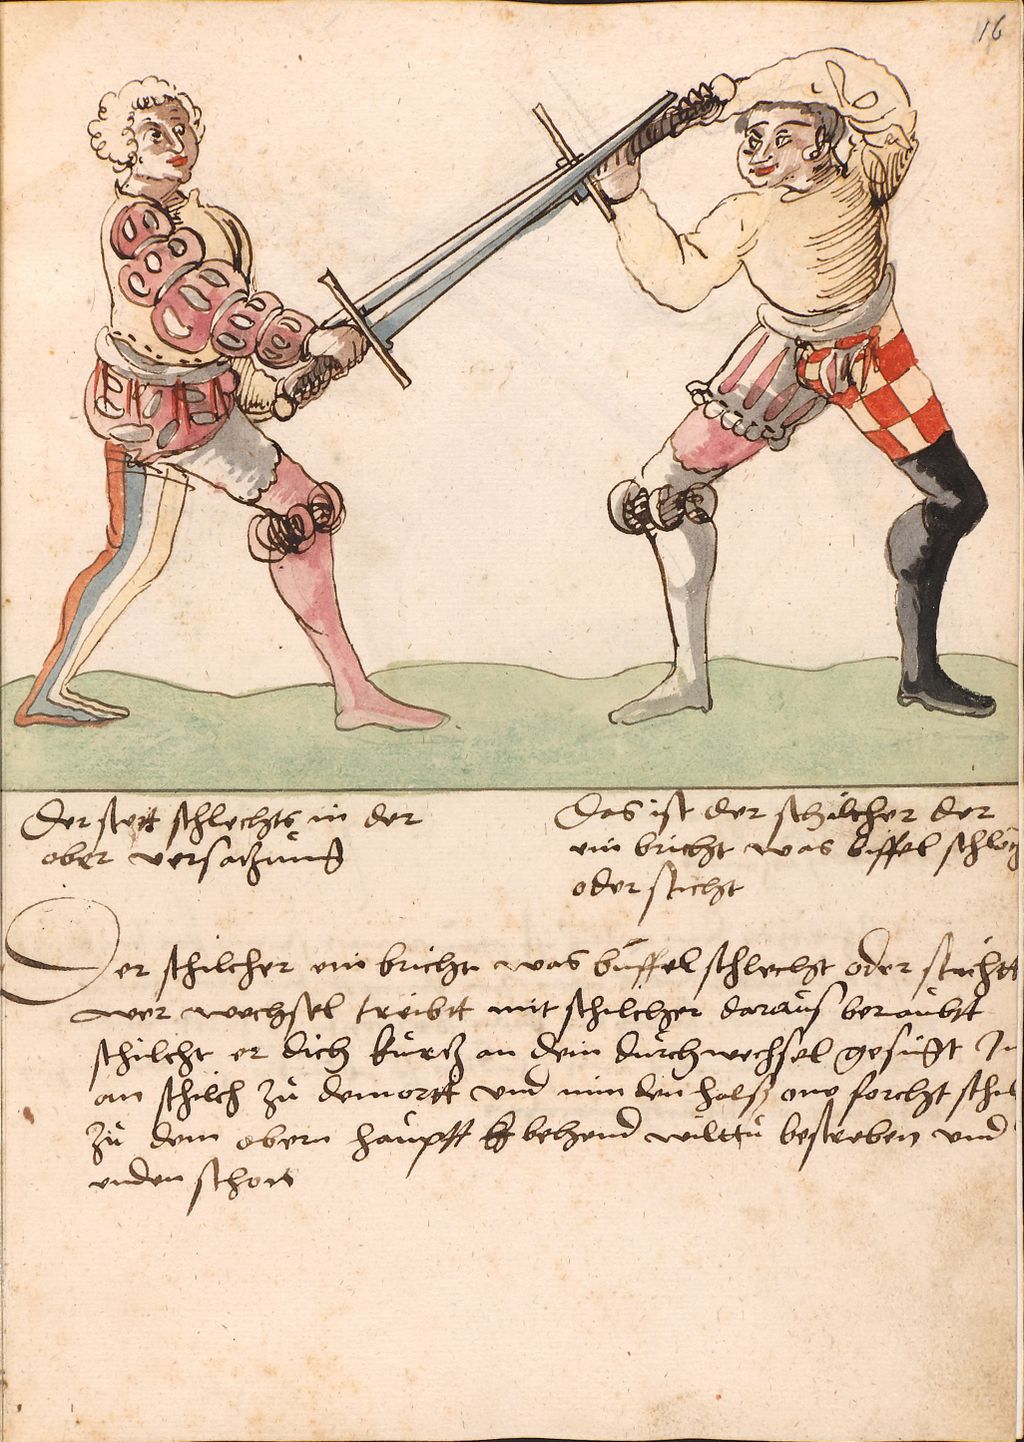 16
Der stett schlechts in der
ober versatzung
Das ist der schilcher der
ein bricht was biffel schlög
oder sticht
Der schilcher ein bricht was büffel schlecht oder stichtt
wer wechsel treibtt mit schilcher daraus beraubtt
schilcht er dich kurtz an dein durchwechsel gesigt In
an schilch zu dem ortt und nim den halß one forcht schil
zu dem obern haupff behend wilttu besterben und
unden schon